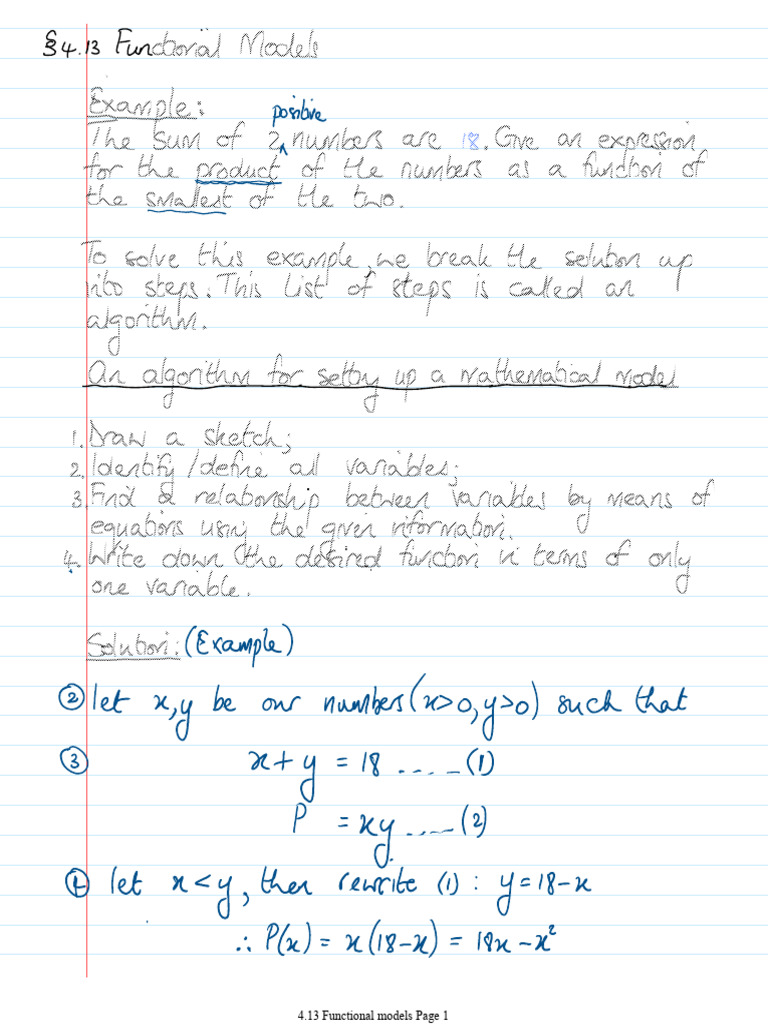 § 4.13 Functional Models
Example:
positive
The sum of 2 numbers are 18. Give an expression
for the product of the numbers as a function of
the smallest of the two.
To solve this example, we break the solution up
into steps. This list of steps is called an
algorithm.
An algorithm for setting up a mathematical model
1. Draw a sketch;
2. Identify/define all variables;
3. Find a relationship between variables by means of
equations using the given information.
4. Write down the desired function in terms of only
one variable.
Solution: (Example)
② let x,y be our numbers (x>0, y>0) such that
③ x + y = 18 ..... (1)
P = xy ..... (2)
④ let x < y, then rewrite (1) : y = 18 - x
∴ P(x) = x(18-x) = 18x - x²
4.13 Functional models Page 1